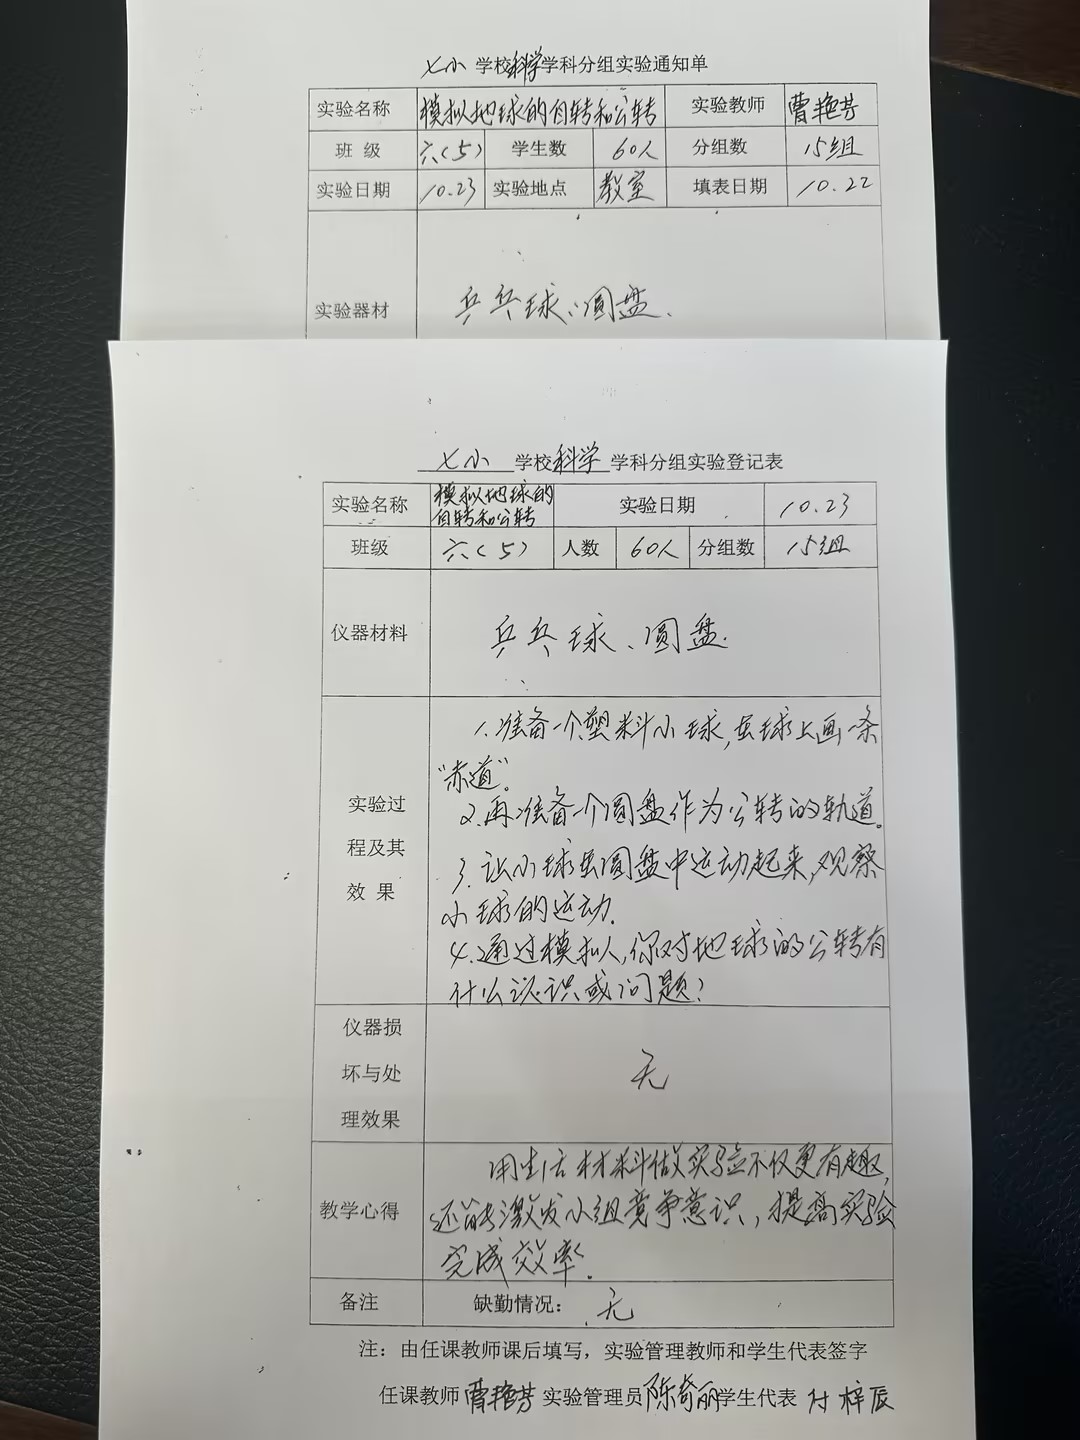 七小 学校科学学科分组实验通知单
实验名称 模拟地球的自转和公转 实验教师 曹艳芳
班 级 六(5) 学生数 60人 分组数 15组
实验日期 10.23 实验地点 教室 填表日期 10.22
实验器材 乒乓球、圆盘.
七小 学校科学 学科分组实验登记表
实验名称 模拟地球的 实验日期 10.23
自转和公转
班级 六(5) 人数 60人 分组数 15组
仪器材料 乒乓球、圆盘.
1.准备一个塑料小球,在球上画一条
“赤道”。
2.再准备一个圆盘作为公转的轨道。
3.让小球在圆盘中运动起来,观察
小球的运动.
4.通过模拟人,你对地球的公转有
什么认识或问题?
实验过
程及其
效 果
仪器损
坏与处 无
理效果
用生活材料做实验不仅更有趣,
教学心得 还能激发小组竞争意识,提高实验
完成效率.
备注 缺勤情况: 无
注:由任课教师课后填写,实验管理教师和学生代表签字
任课教师 曹艳芳 实验管理员 陈奇丽 学生代表 付梓辰